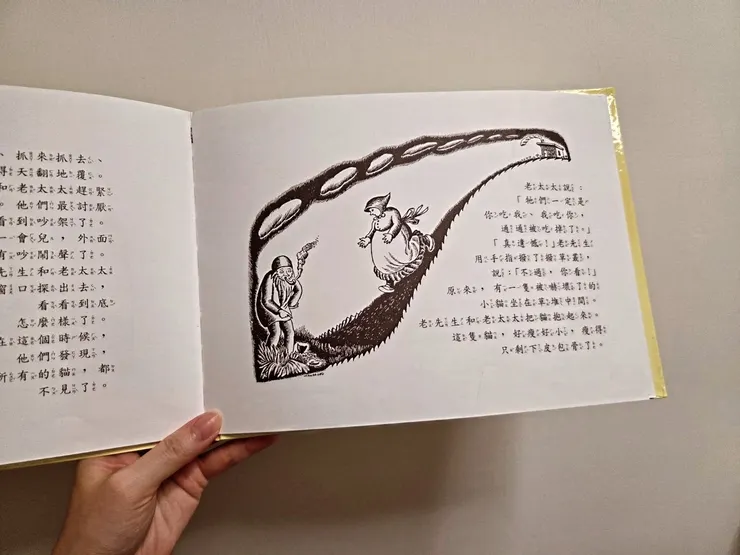 、抓來抓去、
得天翻地覆。
和老太太趕緊
。他們最討厭
看到吵架了。
一會兒，外面
有吵鬧聲了。
先生和老太太
窗口探出去，
看看到底
怎麼樣了。
在這個時候，
他們發現，
所有的貓，都
不見了。
老太太說：
「牠們一定是
你吃我、我吃你，
通通被吃掉了。」
「真遺憾！」老先生
用手指撥了撥草叢，
說：「不過，你看！」
原來，有一隻被嚇壞了的
小貓坐在草堆中間。
老先生和老太太把貓抱起來。
這隻貓，好瘦好小，瘦得
只剩下皮包骨了。